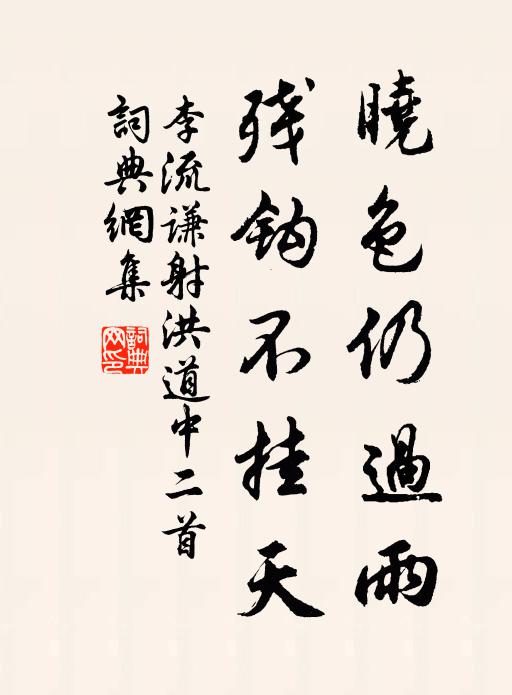 曉色仍過雨
残鈎不挂天
李流谦射洪道中二首
詞典網集
詞典网印